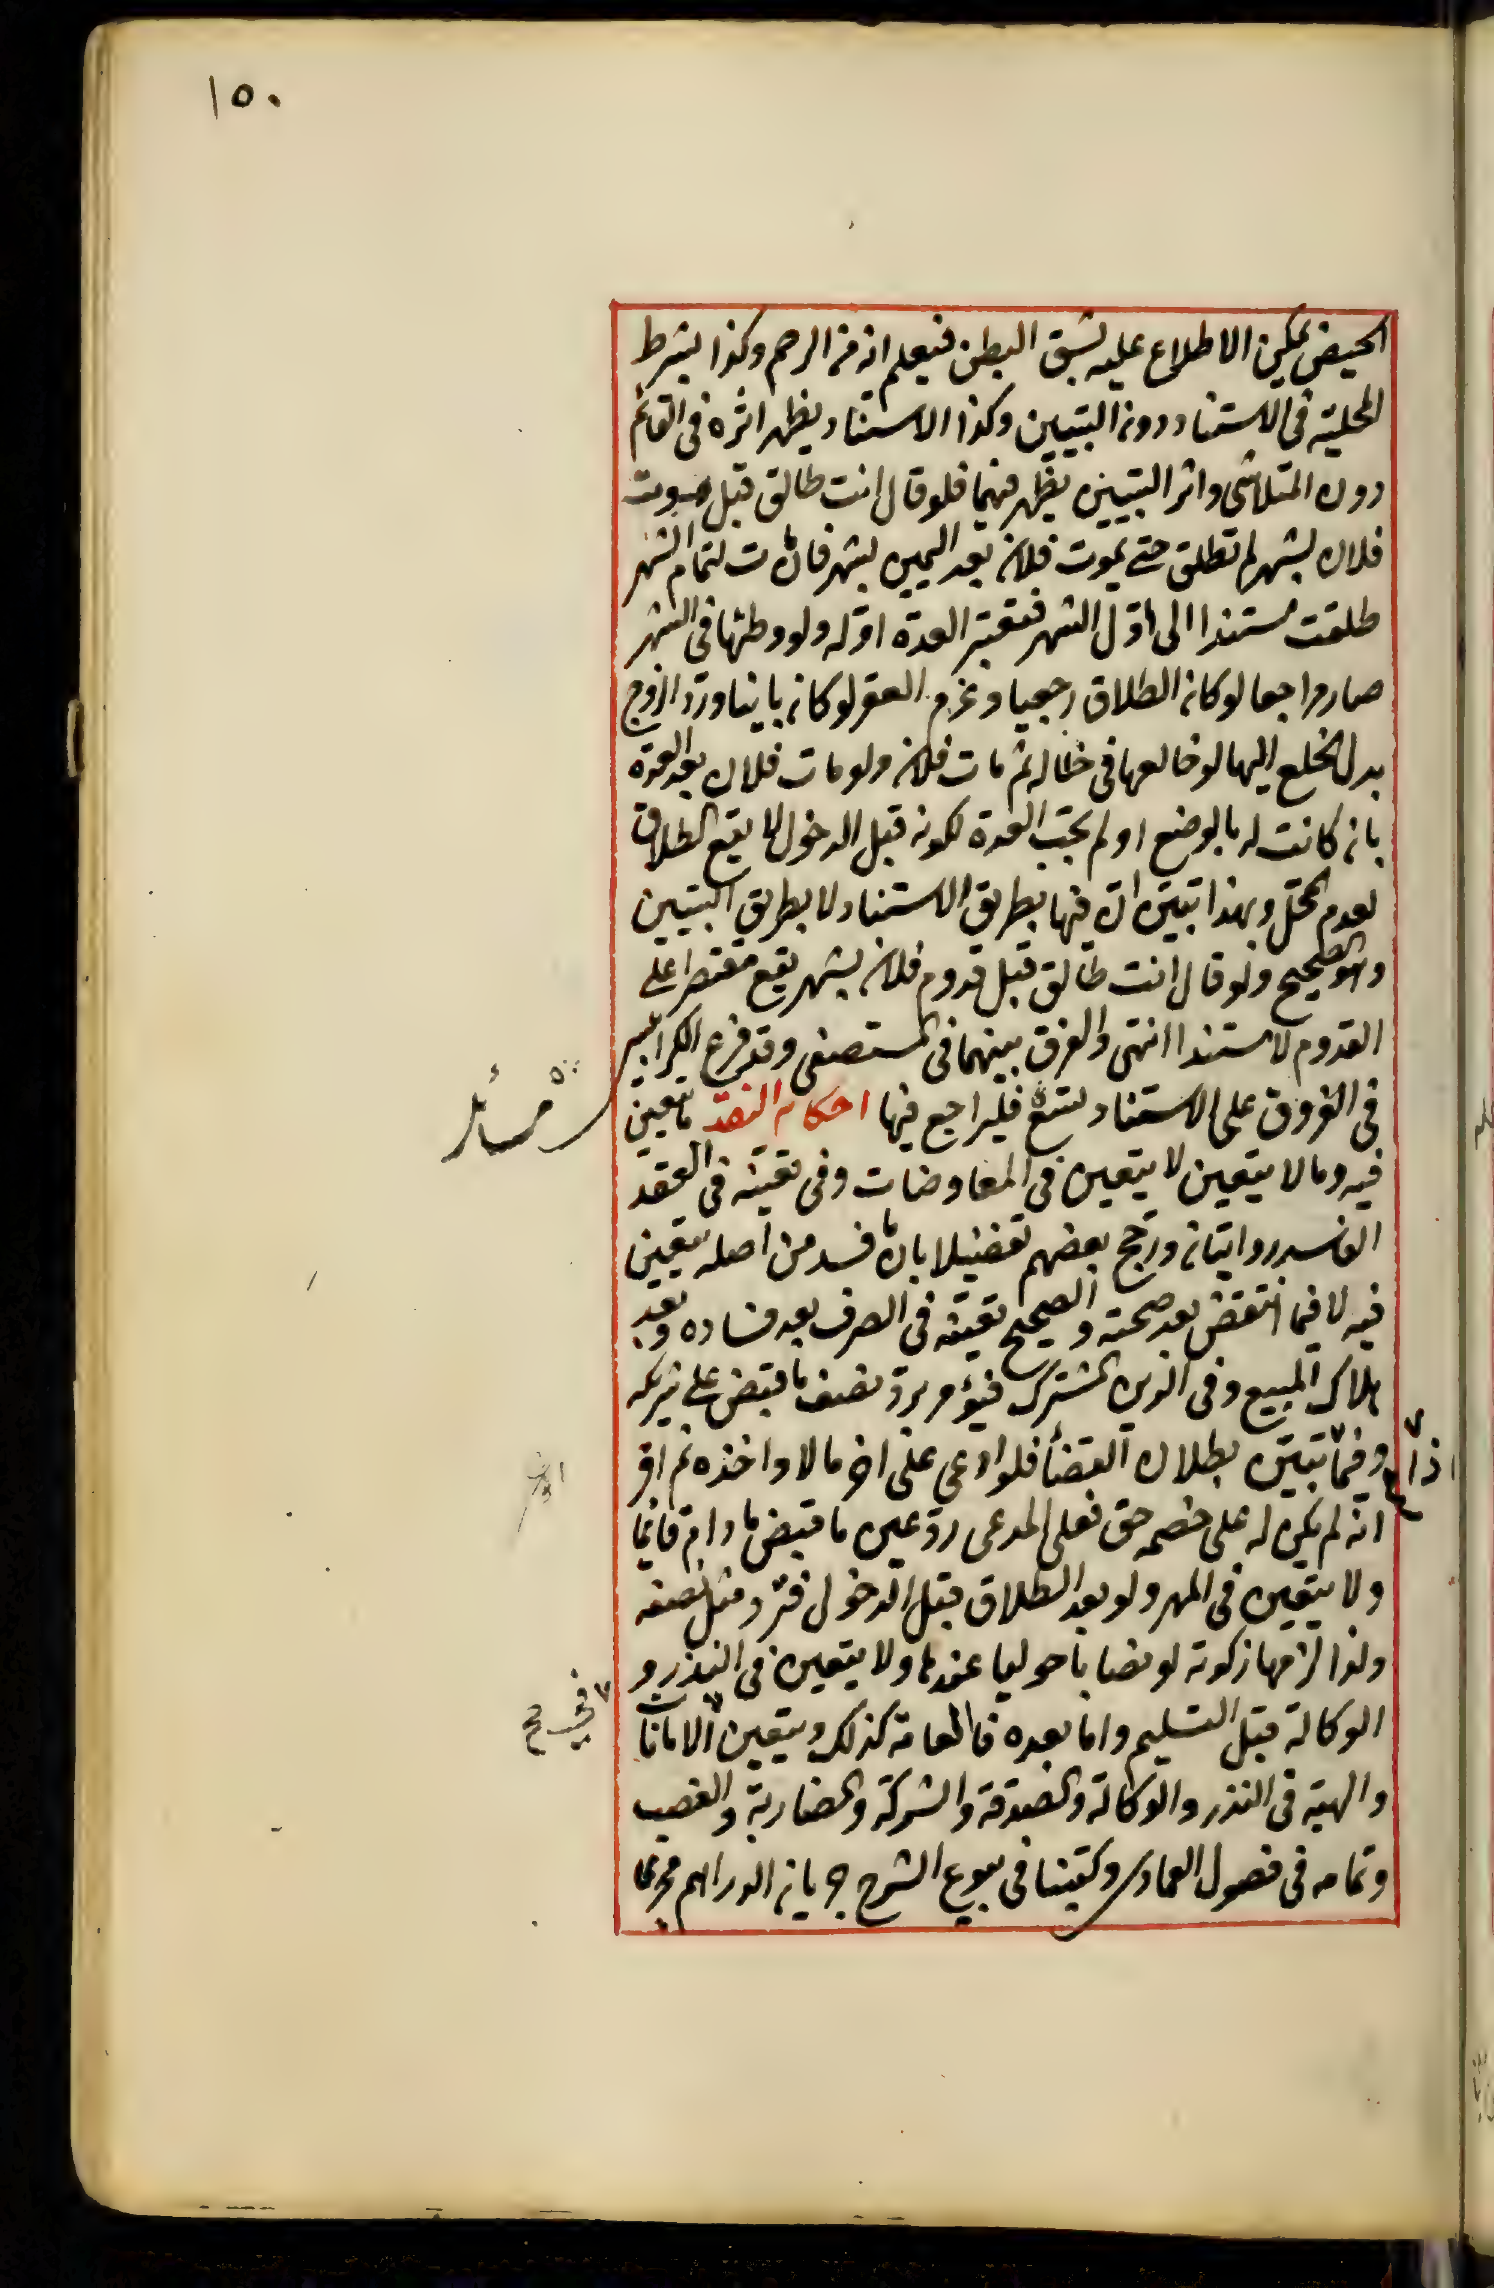 ١٥٠
الحيض يمكن الاطلاع عليه بشق البطن فيعلم انه من الرحم وكذا يشترط
المحلية فى الاستناد دون التبيين وكذا الاستناد يظهر اثره فى القائم
دون المتلاشى واثر التبيين يظهر فيهما فلو قال انت طالق قبل موت
فلان بشهر لم تطلق حتى يموت فلان بعد اليمين بشهر فان مات لتمام الشهر
طلقت مستندا الى اول الشهر فتعتبر العدة اوله ولو وطئها فى الشهر
صار مراجعا لو كان الطلاق رجعيا وغرم العقر لو كان باينا ورد الزوج
بدل الخلع اليها لو خالعها فى خلاله ثم مات فلان ولو مات فلان بعد العدة
بان كانت له بالوضع او لم تجب العدة لكونه قبل الدخول لا يقع الطلاق
لعدم المحل وبهذا تبين ان فيها بطريق الاستناد لا بطريق التبيين
وهو الصحيح ولو قال انت طالق قبل قدوم فلان بشهر يقع مقتصرا على
القدوم لا مستندا انتهى والفرق بينهما فى المستصفى وقد فرع الكرابيسى
فى الفروق على الاستناد تسع مسائل فليراجع فيها احكام النقد ما يتعين
فيه وما لا يتعين لا يتعين فى المعاوضات وفى تعيينه فى العقد
الفاسد روايتان ورجح بعضهم تفصيلا بان ما فسد من اصله يتعين
فيه لا فيما انتقض بعد صحته والصحيح تعينه فى الصرف بعد فساده وبعد
هلاك المبيع وفى الدين المشترك فيؤمر برد نصف ما قبض على شريكه
وفيما اذا تبين بطلان القضأ فلو ادعى على اخر مالا واخذه ثم اقر
انه لم يكن له على خصمه حق فعلى المدعى رد عين ما قبض ما دام قائما
ولا يتعين فى المهر ولو بعد الطلاق قبل الدخول فترد مثل نصفه
ولذا لزمها زكوته لو نصابا حوليا عندها ولا يتعين فى النذر و
الوكالة قبل التسليم واما بعده فالعامة كذلك ويتعين فى الامانات
والهبة فى النذر والوكالة والصدقة والشركة والمضاربة والغصب
وتمامه فى فصول العمادى وكتبنا فى بيوع الشرح جريان الدراهم مجرى